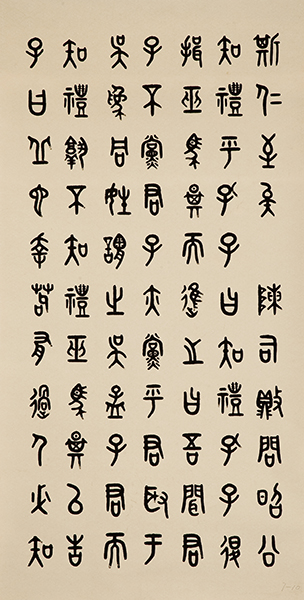 斯仁至矣　陳司敗問昭公
知禮乎孔子曰知禮孔子退
揖巫馬期而進之曰吾聞君
子不黨君子亦黨乎君取于
吳為同姓謂之吳孟子君而
知禮孰不知禮巫馬期以告
子曰丘也幸苟有過人必知